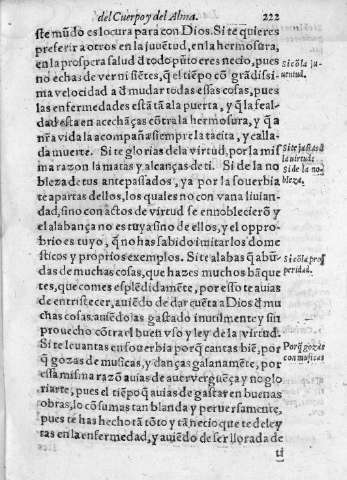 del Cuerpo y del Alma.
222
ste mũdo es locura para con Dios. Si te quieres
preferir a otros en la juvẽtud, en la hermosura,
en la prospera salud ď todo pũto eres necio, pues
no echas de ver ni sietes, q̃ el tiẽpo cõ grãdissi-
ma velocidad a ď mudar todas essas cosas, pues
las enfermedades estã tã ala puerta, y q̃ la feal-
dad esta en acechãças cõtra la hermosura, y q̃ a
nr̃a vida la acompaña siempre la tacita, y calla-
da muerte. Si te glorias dela virtud, por la mis
ma razon la matas y alcanças de ti. Si de la no
bleza de tus antepassados, ya por la souerbia
te apartas dellos, los quales no con vana liuian-
dad, sino con actos de virtud se ennoblecierõ y
el alabança no es tuya sino de ellos, y el oppro-
brio es tuyo, q̃ no has sabido imitar los dome
sticos y proprios exemplos. Si te alabas q̃ abũ-
das de muchas cosas, que hazes muchos bãque
tes, que comes esplẽdidamẽte, por esso te auias
de entristecer, auiẽdo de dar cuẽta a Dios ď mu
chas cosas. auiẽdolas gastado inutilmente y sin
prouecho cõtra el buen vso y ley de la virtud.
Si te leuantas en souerbia porq̃ cantas biẽ, por
q̃ gozas de musicas, y danças galanamẽte, por
essa misma razõ auias de auer verguẽça y no glo
riarte, pues el tiẽpo q̃ auias de gastar en buenas
obras, lo cõsumas tan blanda y peruersamente,
pues te has hecho tã tõto y tã necio que te deley
tas en la enfermedad, y auiẽdo de ser llorada de
ti
Si cõ la ju-
uentud.
Si te jactas ď
la virtud:
Si de la no-
bleza.
Si cõ la pros
peridad.
Porq̃ gozas
con musicas